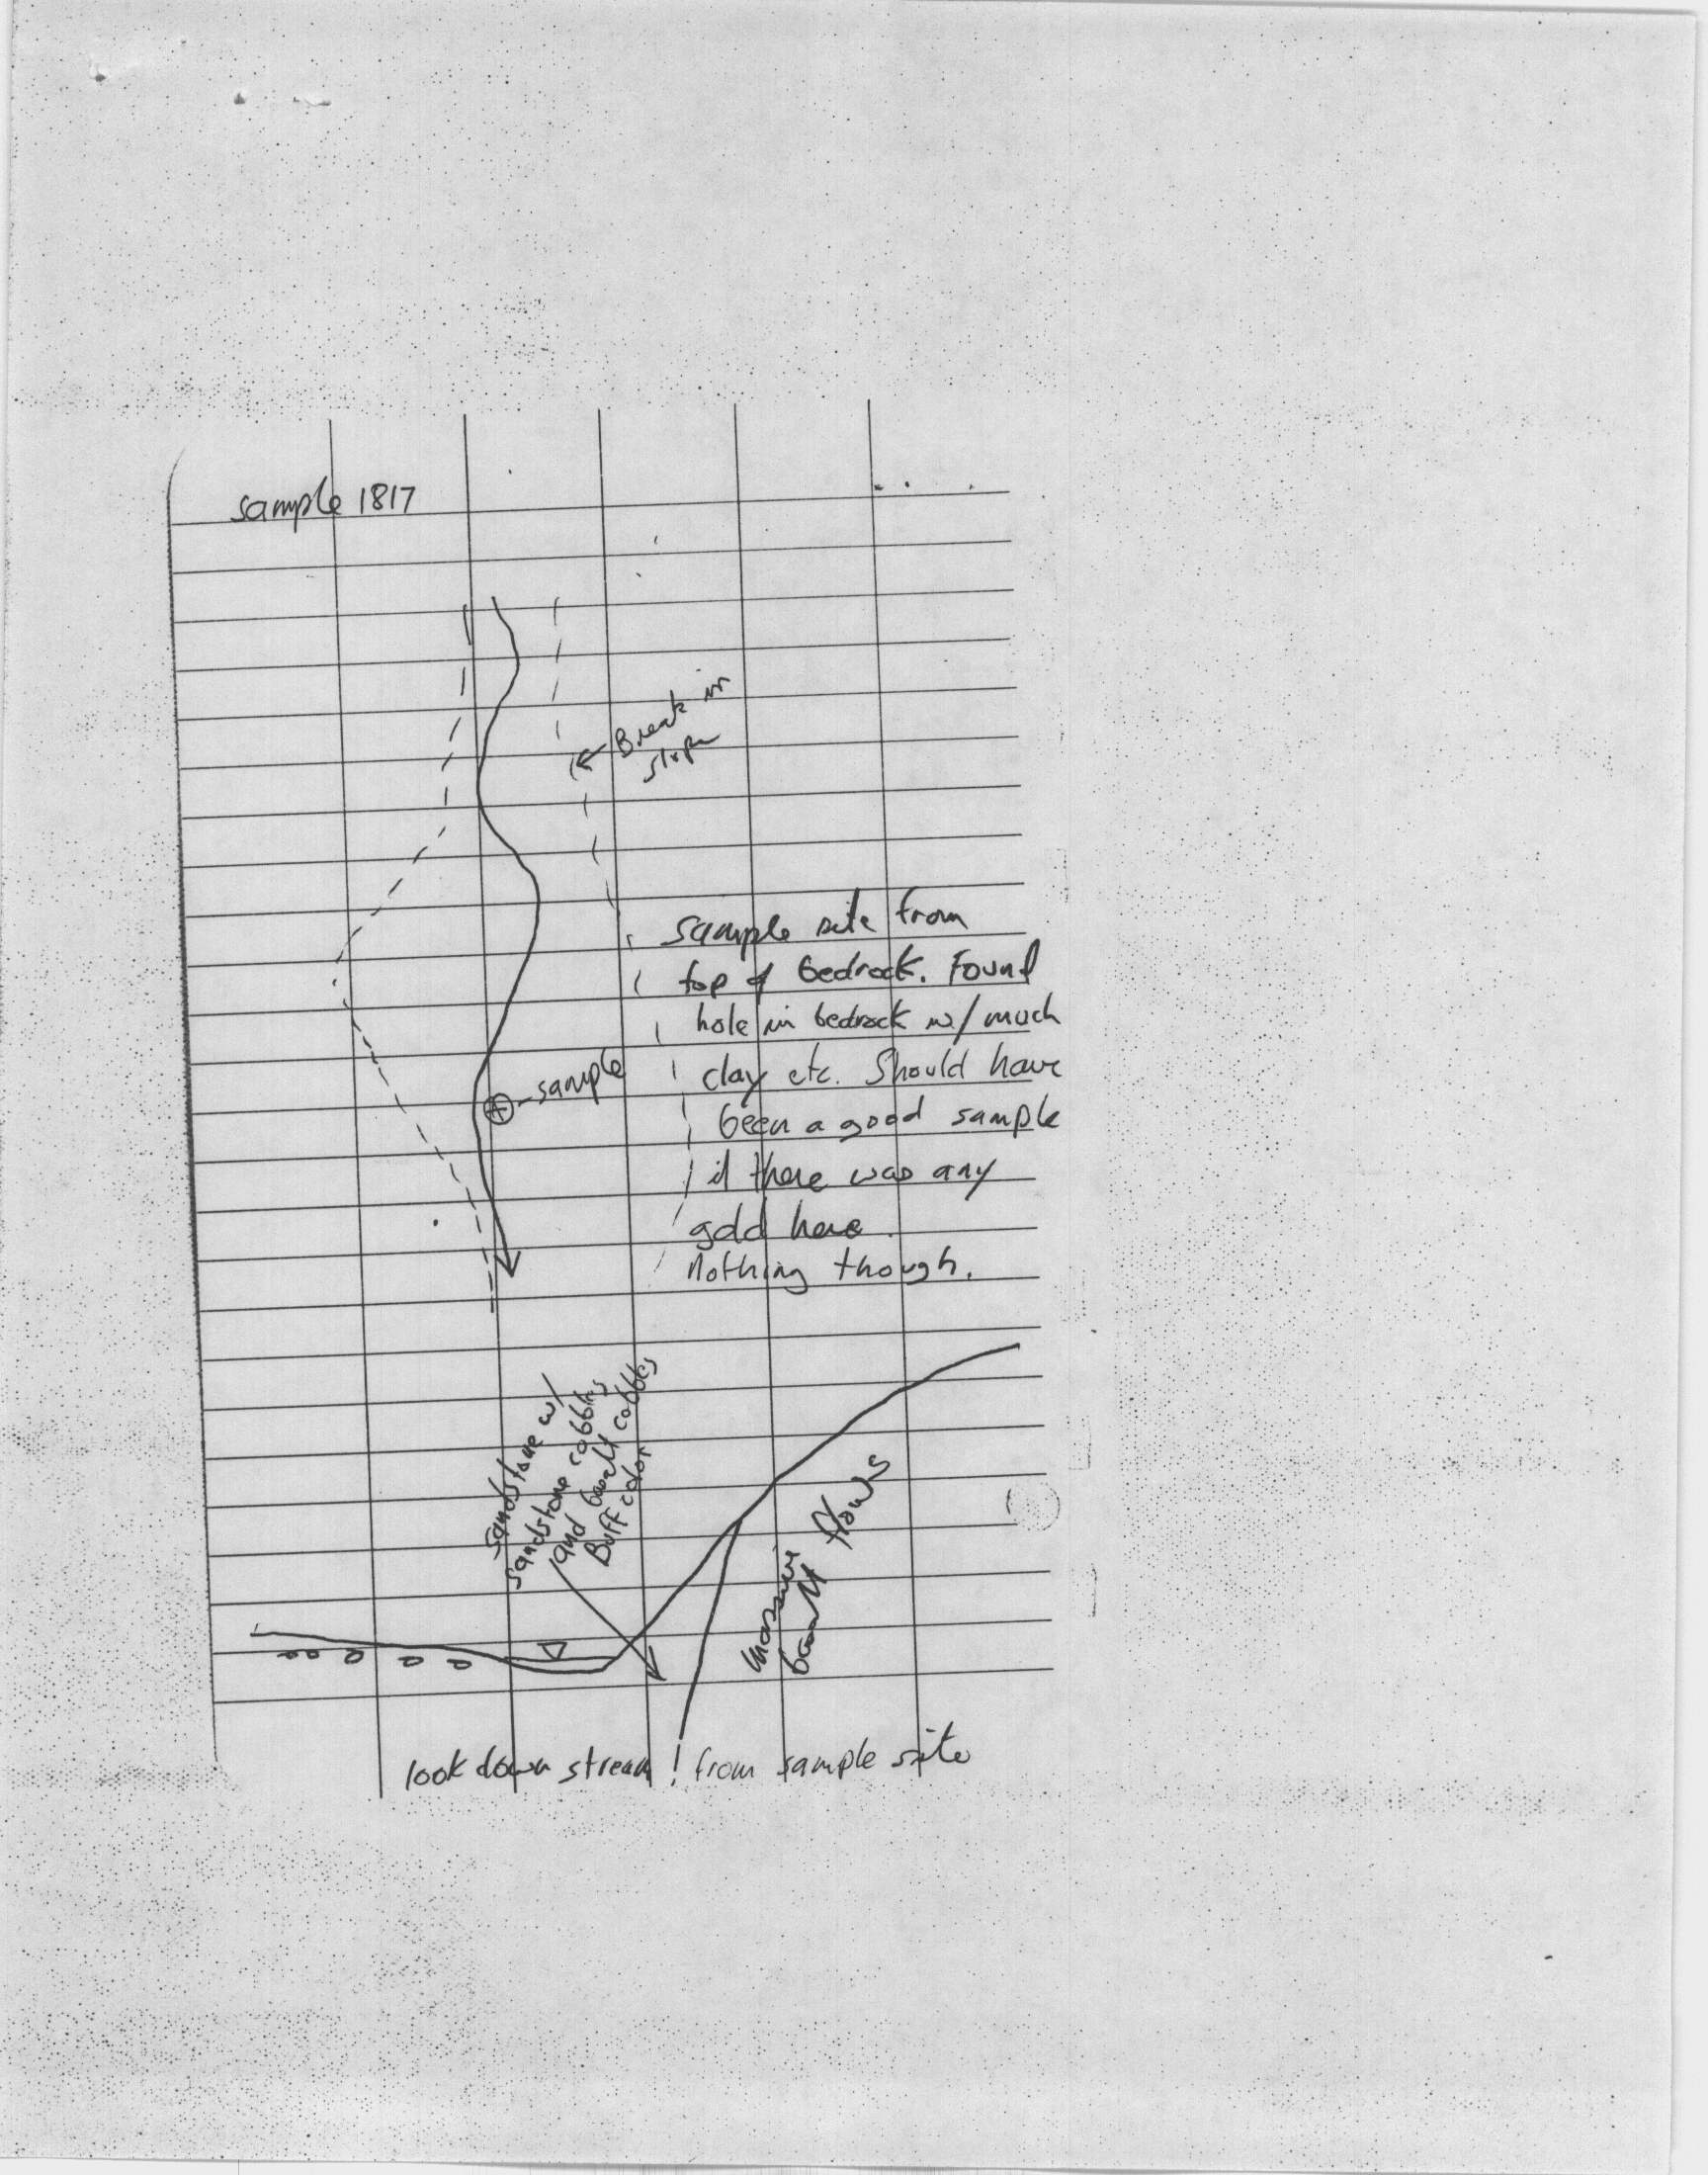 sample 1817
Break in
slope
sample site from
top of bedrock. Found
hole in bedrock w/ much
clay etc. Should have
-sample
been a good sample
if there was any
gold here.
Nothing though.
sandstone w/
sandstone cobbles
and basalt cobbles
Buff color
massive
basalt flows
look down stream! from sample site